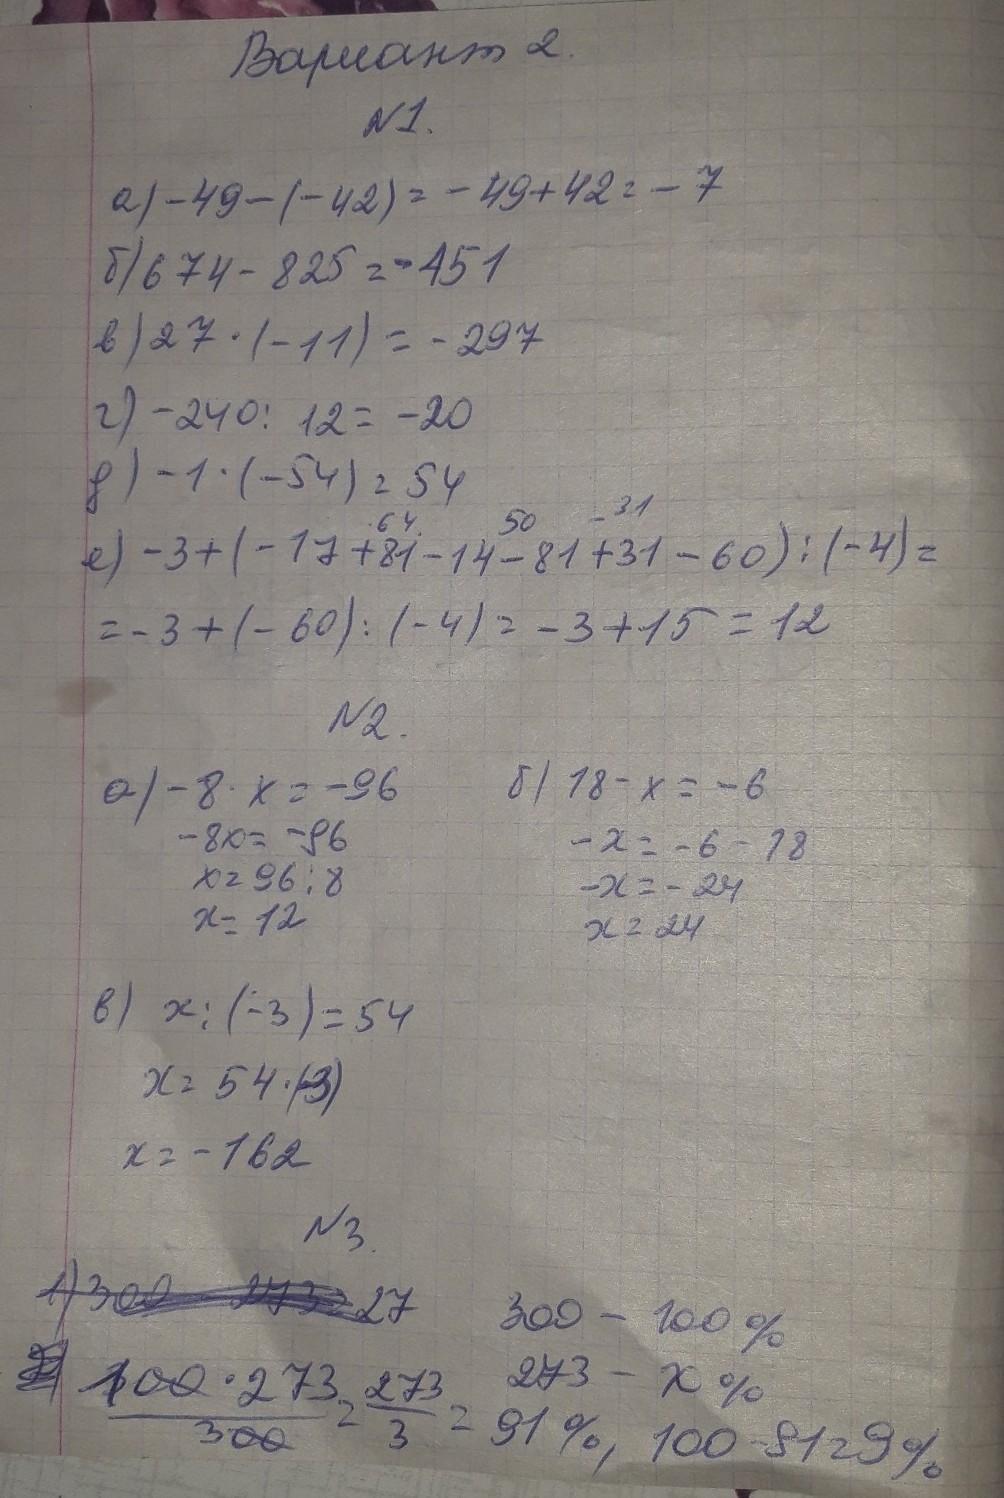 Вариант 2.
N1.
а) -49-(-42) = -49+42 = -7
б) 674-825 = -451
в) 27·(-11) = -297
г) -240: 12 = -20
д) -1·(-54) = 54
64 50 -31
е) -3+(-17+81-14-81+31-60):(-4)=
=-3+(-60):(-4) = -3+15 = 12
N2.
а) -8·x = -96
-8x = -96
x = 96:8
x = 12
б) 18-x = -6
-x = -6-18
-x = -24
x = 24
в) x:(-3) = 54
x = 54·(-3)
x = -162
N3.
1) 300 - 273 = 27
300 - 100%
273 - x%
100·273/300 = 273/3 = 91%, 100-91=9%